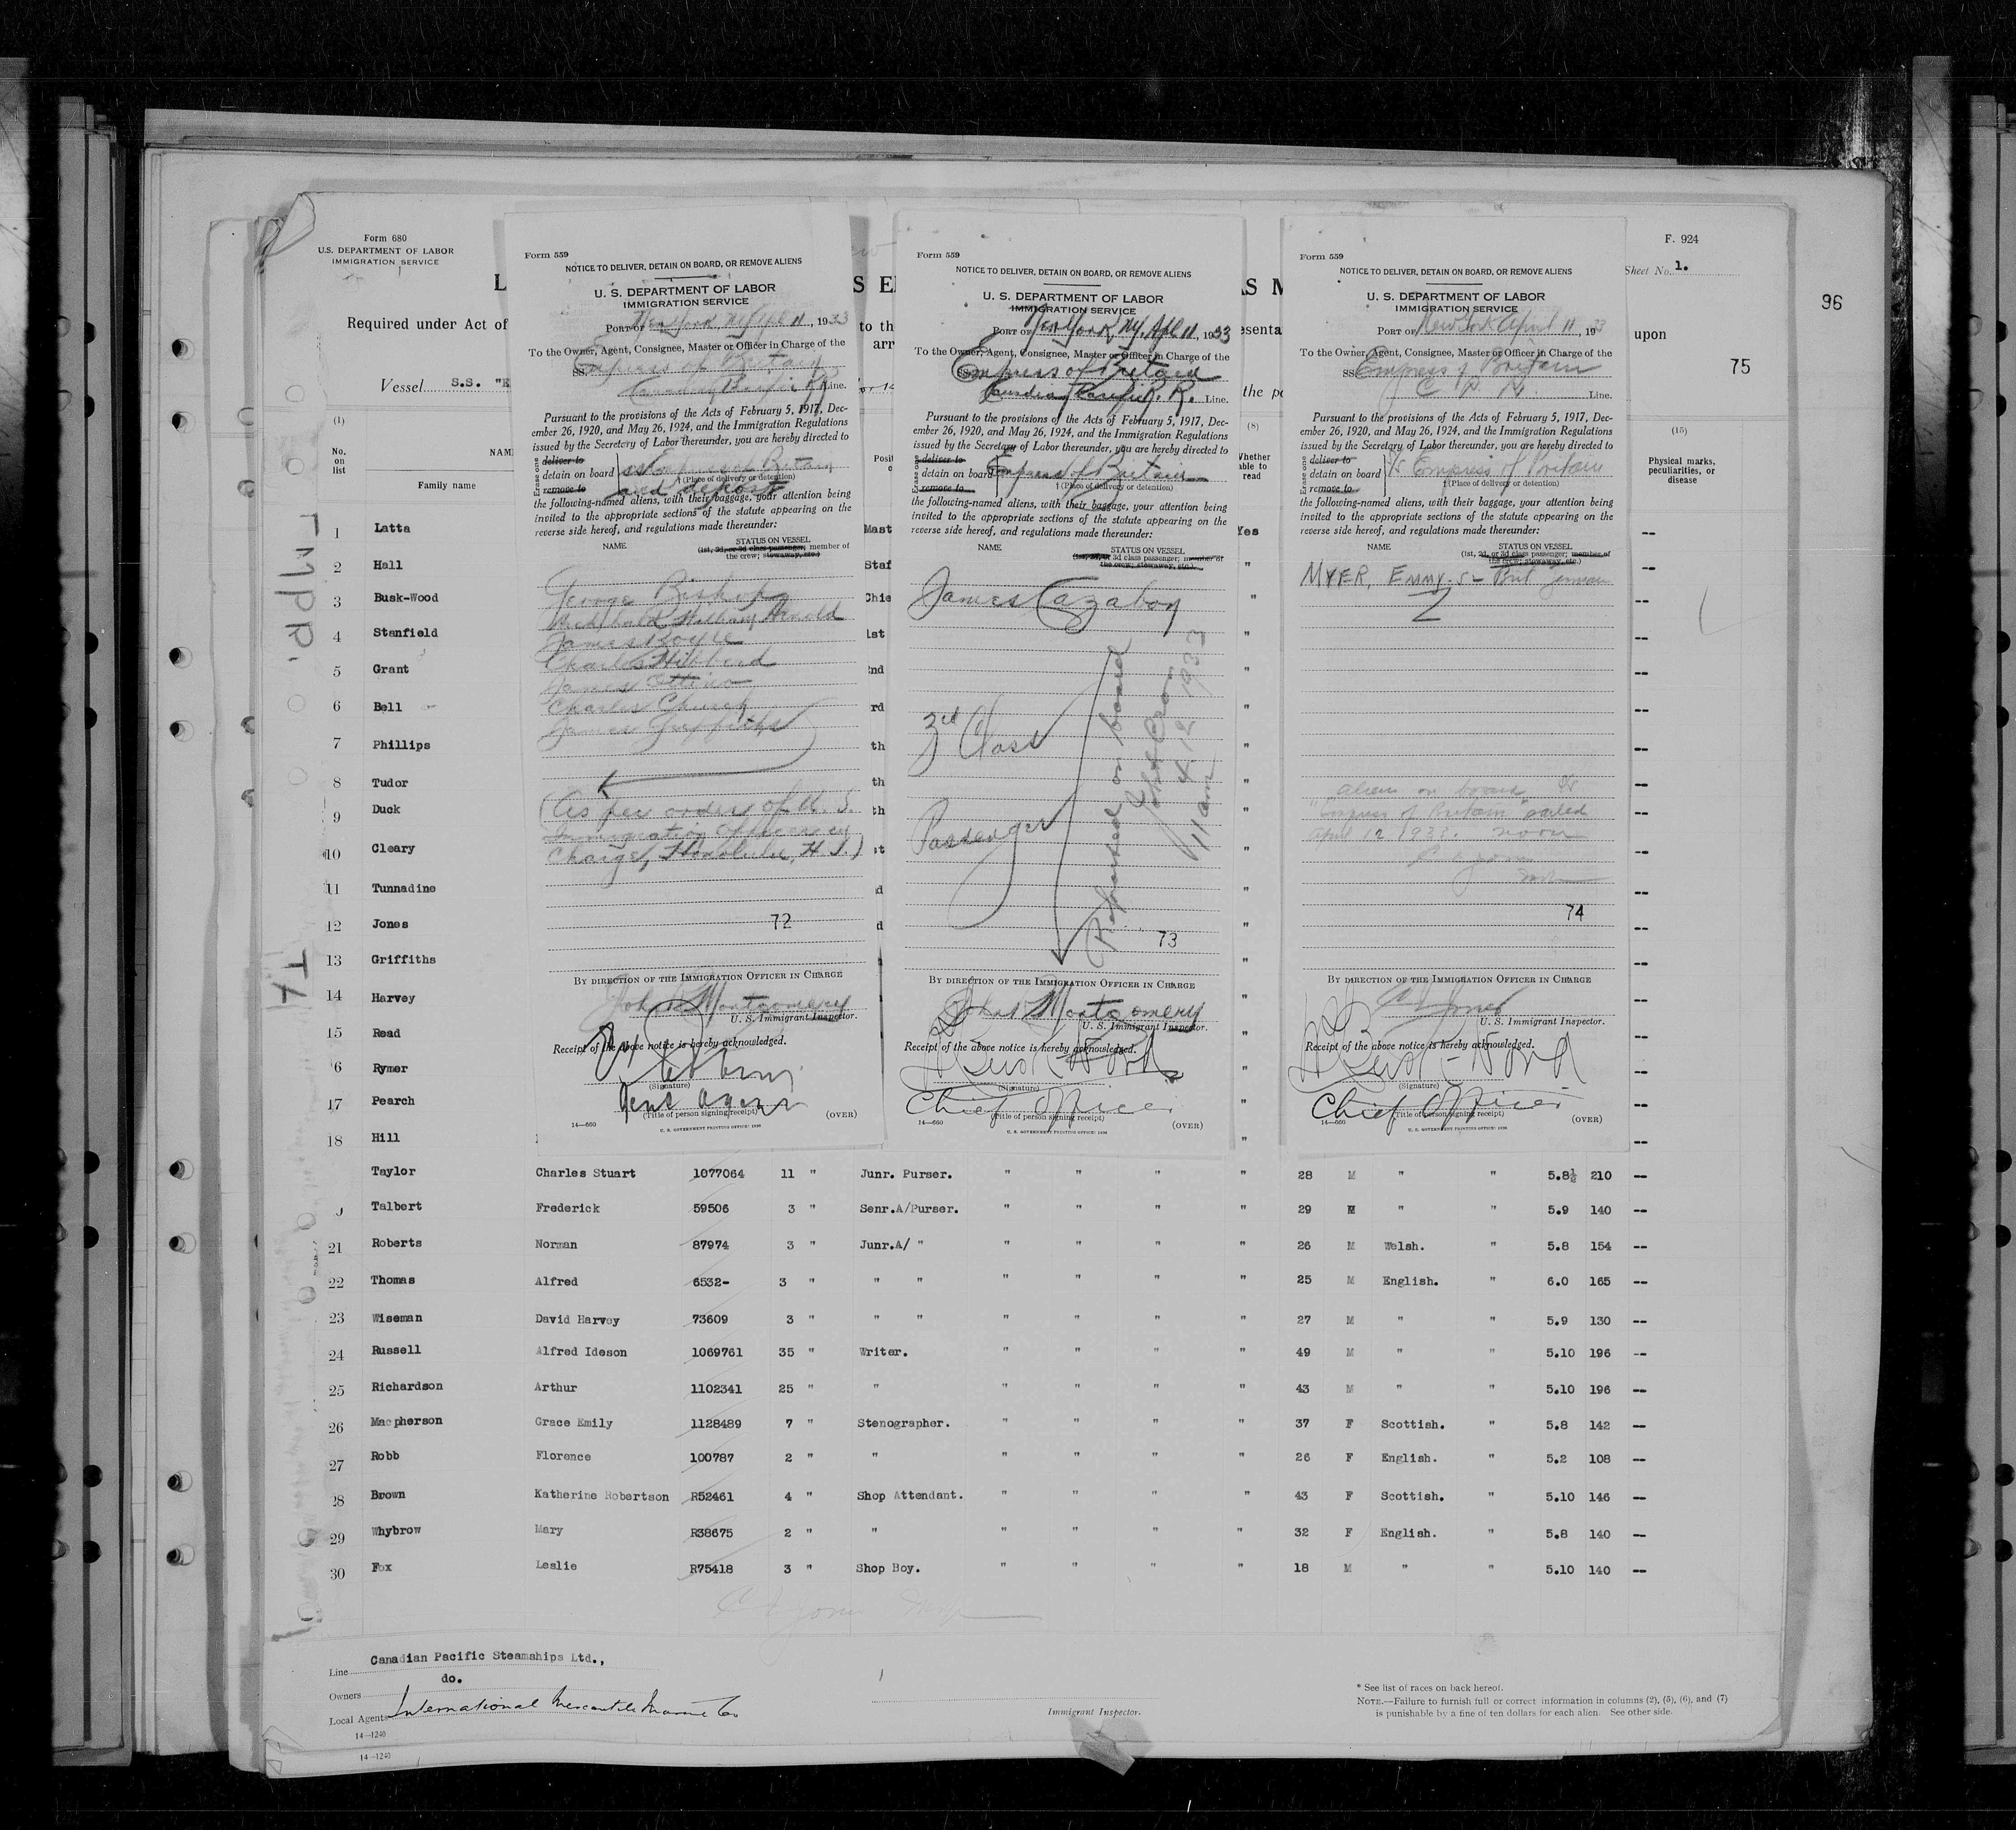 Form 680
U.S. DEPARTMENT OF LABOR
IMMIGRATION SERVICE
L
S E
AS M
F. 924
Sheet No. 1.
96
Required under Act of
to th
arr
esenta
upon
75
Vessel S.S. "E
the po
(1)
(8)
(15)
No. on list
NAM
Family name
Posit
Whether
able to
read
Physical marks, peculiarities, or disease
Form 559
NOTICE TO DELIVER, DETAIN ON BOARD, OR REMOVE ALIENS
U. S. DEPARTMENT OF LABOR
IMMIGRATION SERVICE
PORT OF New York, NY Apl 11, 1933
To the Owner, Agent, Consignee, Master or Officer in Charge of the
SS. Empress of Britain
Canadian Pacific RR Line.
Pursuant to the provisions of the Acts of February 5, 1917, Dec-
ember 26, 1920, and May 26, 1924, and the Immigration Regulations
issued by the Secretary of Labor thereunder, you are hereby directed to
Erase one
deliver to
detain on board SS Empress of Britain
† (Place of delivery or detention)
remove to and deport
the following-named aliens, with their baggage, your attention being
invited to the appropriate sections of the statute appearing on the
reverse side hereof, and regulations made thereunder:
NAME
STATUS ON VESSEL
(1st, 2d, or 3d class passenger; member of
the crew; stowaway, etc.)
George Bishop
Archibald William Arnold
James Boyle
Charles Hibberd
James
Charles Church
James Griffiths
(As per order of U. S.
Immigration Officer in
Charge, Honolulu, H. I.)
72
BY DIRECTION OF THE IMMIGRATION OFFICER IN CHARGE
John Montgomery
U. S. Immigrant Inspector.
Receipt of the above notice is hereby acknowledged.
(Signature)
Genl Agent
(Title of person signing receipt)
(OVER)
14—660
U. S. GOVERNMENT PRINTING OFFICE: 1930
Form 559
NOTICE TO DELIVER, DETAIN ON BOARD, OR REMOVE ALIENS
U. S. DEPARTMENT OF LABOR
IMMIGRATION SERVICE
PORT OF New York, NY. Apl 11, 1933
To the Owner, Agent, Consignee, Master or Officer in Charge of the
SS Empress of Britain
Canadian Pacific R. R. Line.
Pursuant to the provisions of the Acts of February 5, 1917, Dec-
ember 26, 1920, and May 26, 1924, and the Immigration Regulations
issued by the Secretary of Labor thereunder, you are hereby directed to
Erase one
deliver to
detain on board Empress of Britain
† (Place of delivery or detention)
remove to
the following-named aliens, with their baggage, your attention being
invited to the appropriate sections of the statute appearing on the
reverse side hereof, and regulations made thereunder:
NAME
STATUS ON VESSEL
(1st, 2d, or 3d class passenger; member of
the crew; stowaway, etc.)
James Cazabon
3rd Class
Passenger
Reported on board
4.12.1933
11 am
73
BY DIRECTION OF THE IMMIGRATION OFFICER IN CHARGE
John Montgomery
U. S. Immigrant Inspector.
Receipt of the above notice is hereby acknowledged.
(Signature)
Chief Officer
(Title of person signing receipt)
(OVER)
14—660
U. S. GOVERNMENT PRINTING OFFICE: 1930
Form 559
NOTICE TO DELIVER, DETAIN ON BOARD, OR REMOVE ALIENS
U. S. DEPARTMENT OF LABOR
IMMIGRATION SERVICE
PORT OF New York April 11, 1933
To the Owner, Agent, Consignee, Master or Officer in Charge of the
SS Empress of Britain
C. P. R. Line.
Pursuant to the provisions of the Acts of February 5, 1917, Dec-
ember 26, 1920, and May 26, 1924, and the Immigration Regulations
issued by the Secretary of Labor thereunder, you are hereby directed to
Erase one
deliver to
detain on board S/S Empress of Britain
† (Place of delivery or detention)
remove to
the following-named aliens, with their baggage, your attention being
invited to the appropriate sections of the statute appearing on the
reverse side hereof, and regulations made thereunder:
NAME
STATUS ON VESSEL
(1st, 2d, or 3d class passenger; member of
the crew; stowaway, etc.)
MYER, EMMY. S-
aliens on board S/S
"Empress of Britain" sailed
April 12 1933. noon
74
BY DIRECTION OF THE IMMIGRATION OFFICER IN CHARGE
Jones
U. S. Immigrant Inspector.
Receipt of the above notice is hereby acknowledged.
(Signature)
Chief Officer
(Title of person signing receipt)
(OVER)
14—660
U. S. GOVERNMENT PRINTING OFFICE: 1930
1 Latta Mast Yes --
2 Hall Staf " --
3 Busk-Wood Chie " --
4 Stanfield 1st " --
5 Grant 2nd " --
6 Bell rd " --
7 Phillips th " --
8 Tudor th " --
9 Duck th " --
10 Cleary st " --
11 Tunnadine d " --
12 Jones d " --
13 Griffiths " --
14 Harvey " --
15 Read " --
6 Rymer " --
17 Pearch " --
18 Hill " --
Taylor Charles Stuart 1077064 11 " Junr. Purser. " " " " 28 M " " 5.8½ 210 --
Talbert Frederick 59506 3 " Senr.A/Purser. " " " " 29 M " " 5.9 140 --
21 Roberts Norman 87974 3 " Junr.A/ " " " " " 26 M Welsh. " 5.8 154 --
22 Thomas Alfred 6532- 3 " " " " " " " 25 M English. " 6.0 165 --
23 Wiseman David Harvey 73609 3 " " " " " " " 27 M " " 5.9 130 --
24 Russell Alfred Ideson 1069761 35 " Writer. " " " " 49 M " " 5.10 196 --
25 Richardson Arthur 1102341 25 " " " " " " 43 M " " 5.10 196 --
26 Macpherson Grace Emily 1128489 7 " Stenographer. " " " " 37 F Scottish. " 5.8 142 --
27 Robb Florence 100787 2 " " " " " " 26 F English. " 5.2 108 --
28 Brown Katherine Robertson R52461 4 " Shop Attendant. " " " " 43 F Scottish. " 5.10 146 --
29 Whybrow Mary R38675 2 " " " " " " 32 F English. " 5.8 140 --
30 Fox Leslie R75418 3 " Shop Boy. " " " " 18 M " " 5.10 140 --
Line Canadian Pacific Steamships Ltd.,
Owners do.
Local Agents International Mercantile Marine Co
Immigrant Inspector.
* See list of races on back hereof.
NOTE.—Failure to furnish full or correct information in columns (2), (5), (6), and (7)
is punishable by a fine of ten dollars for each alien. See other side.
14—1240
14—1240